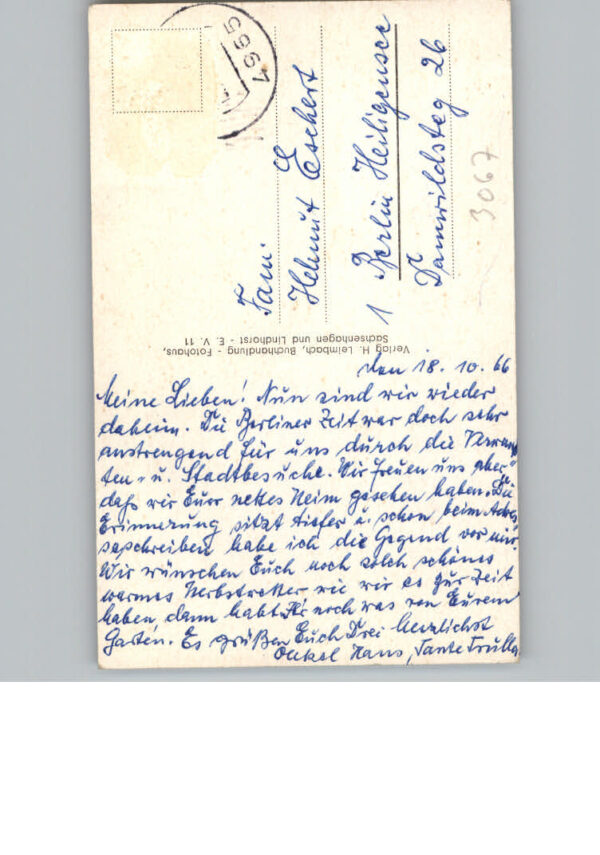 1965
Fam.
Helmut Eschert
1 Berlin Heiligensee
Damwildsteg 26
3067
Verlag H. Leimbach, Buchhandlung - Fotohaus,
Sachsenhagen und Lindhorst - E. V. 11
den 18. 10. 66
Meine Lieben! Nun sind wir wieder
daheim. Die Berliner Zeit war doch sehr
anstrengend für uns durch die Verwand-
ten- u. Stadtbesuche. Wir freuen uns aber
daß wir Euer nettes Heim gesehen haben. Die
Erinnerung sitzt tiefer u. schon beim Adres-
seschreiben habe ich die Gegend vor mir.
Wir wünschen Euch noch solch schönes
warmes Herbstwetter wie wir es zur Zeit
haben, dann habt Ihr noch was von Eurem
Garten. Es grüßen Euch Drei herzlichst
Onkel Hans, Tante Trulla